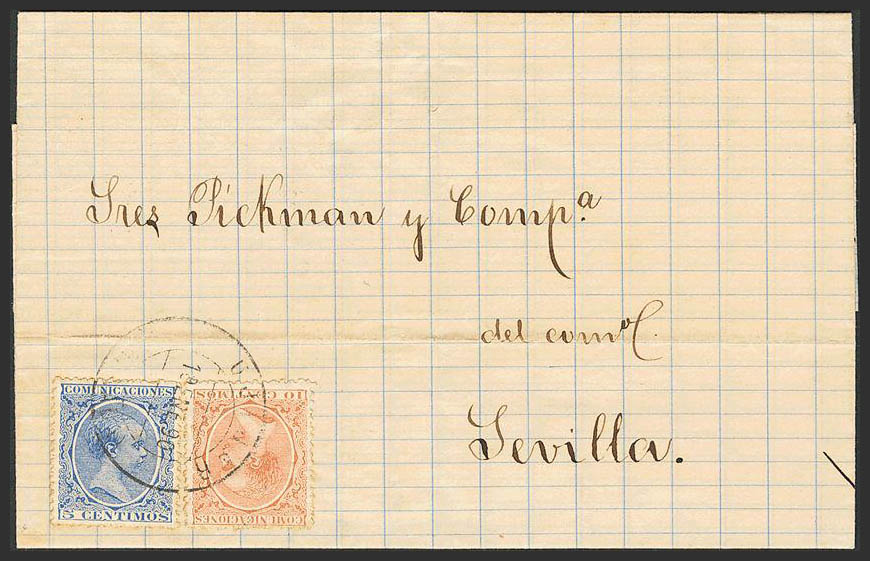 Sres Pickman y Compª.
del comol.
Sevilla.
COMUNICACIONES
5 CENTIMOS
10 CENTIMOS
COMUNICACIONES